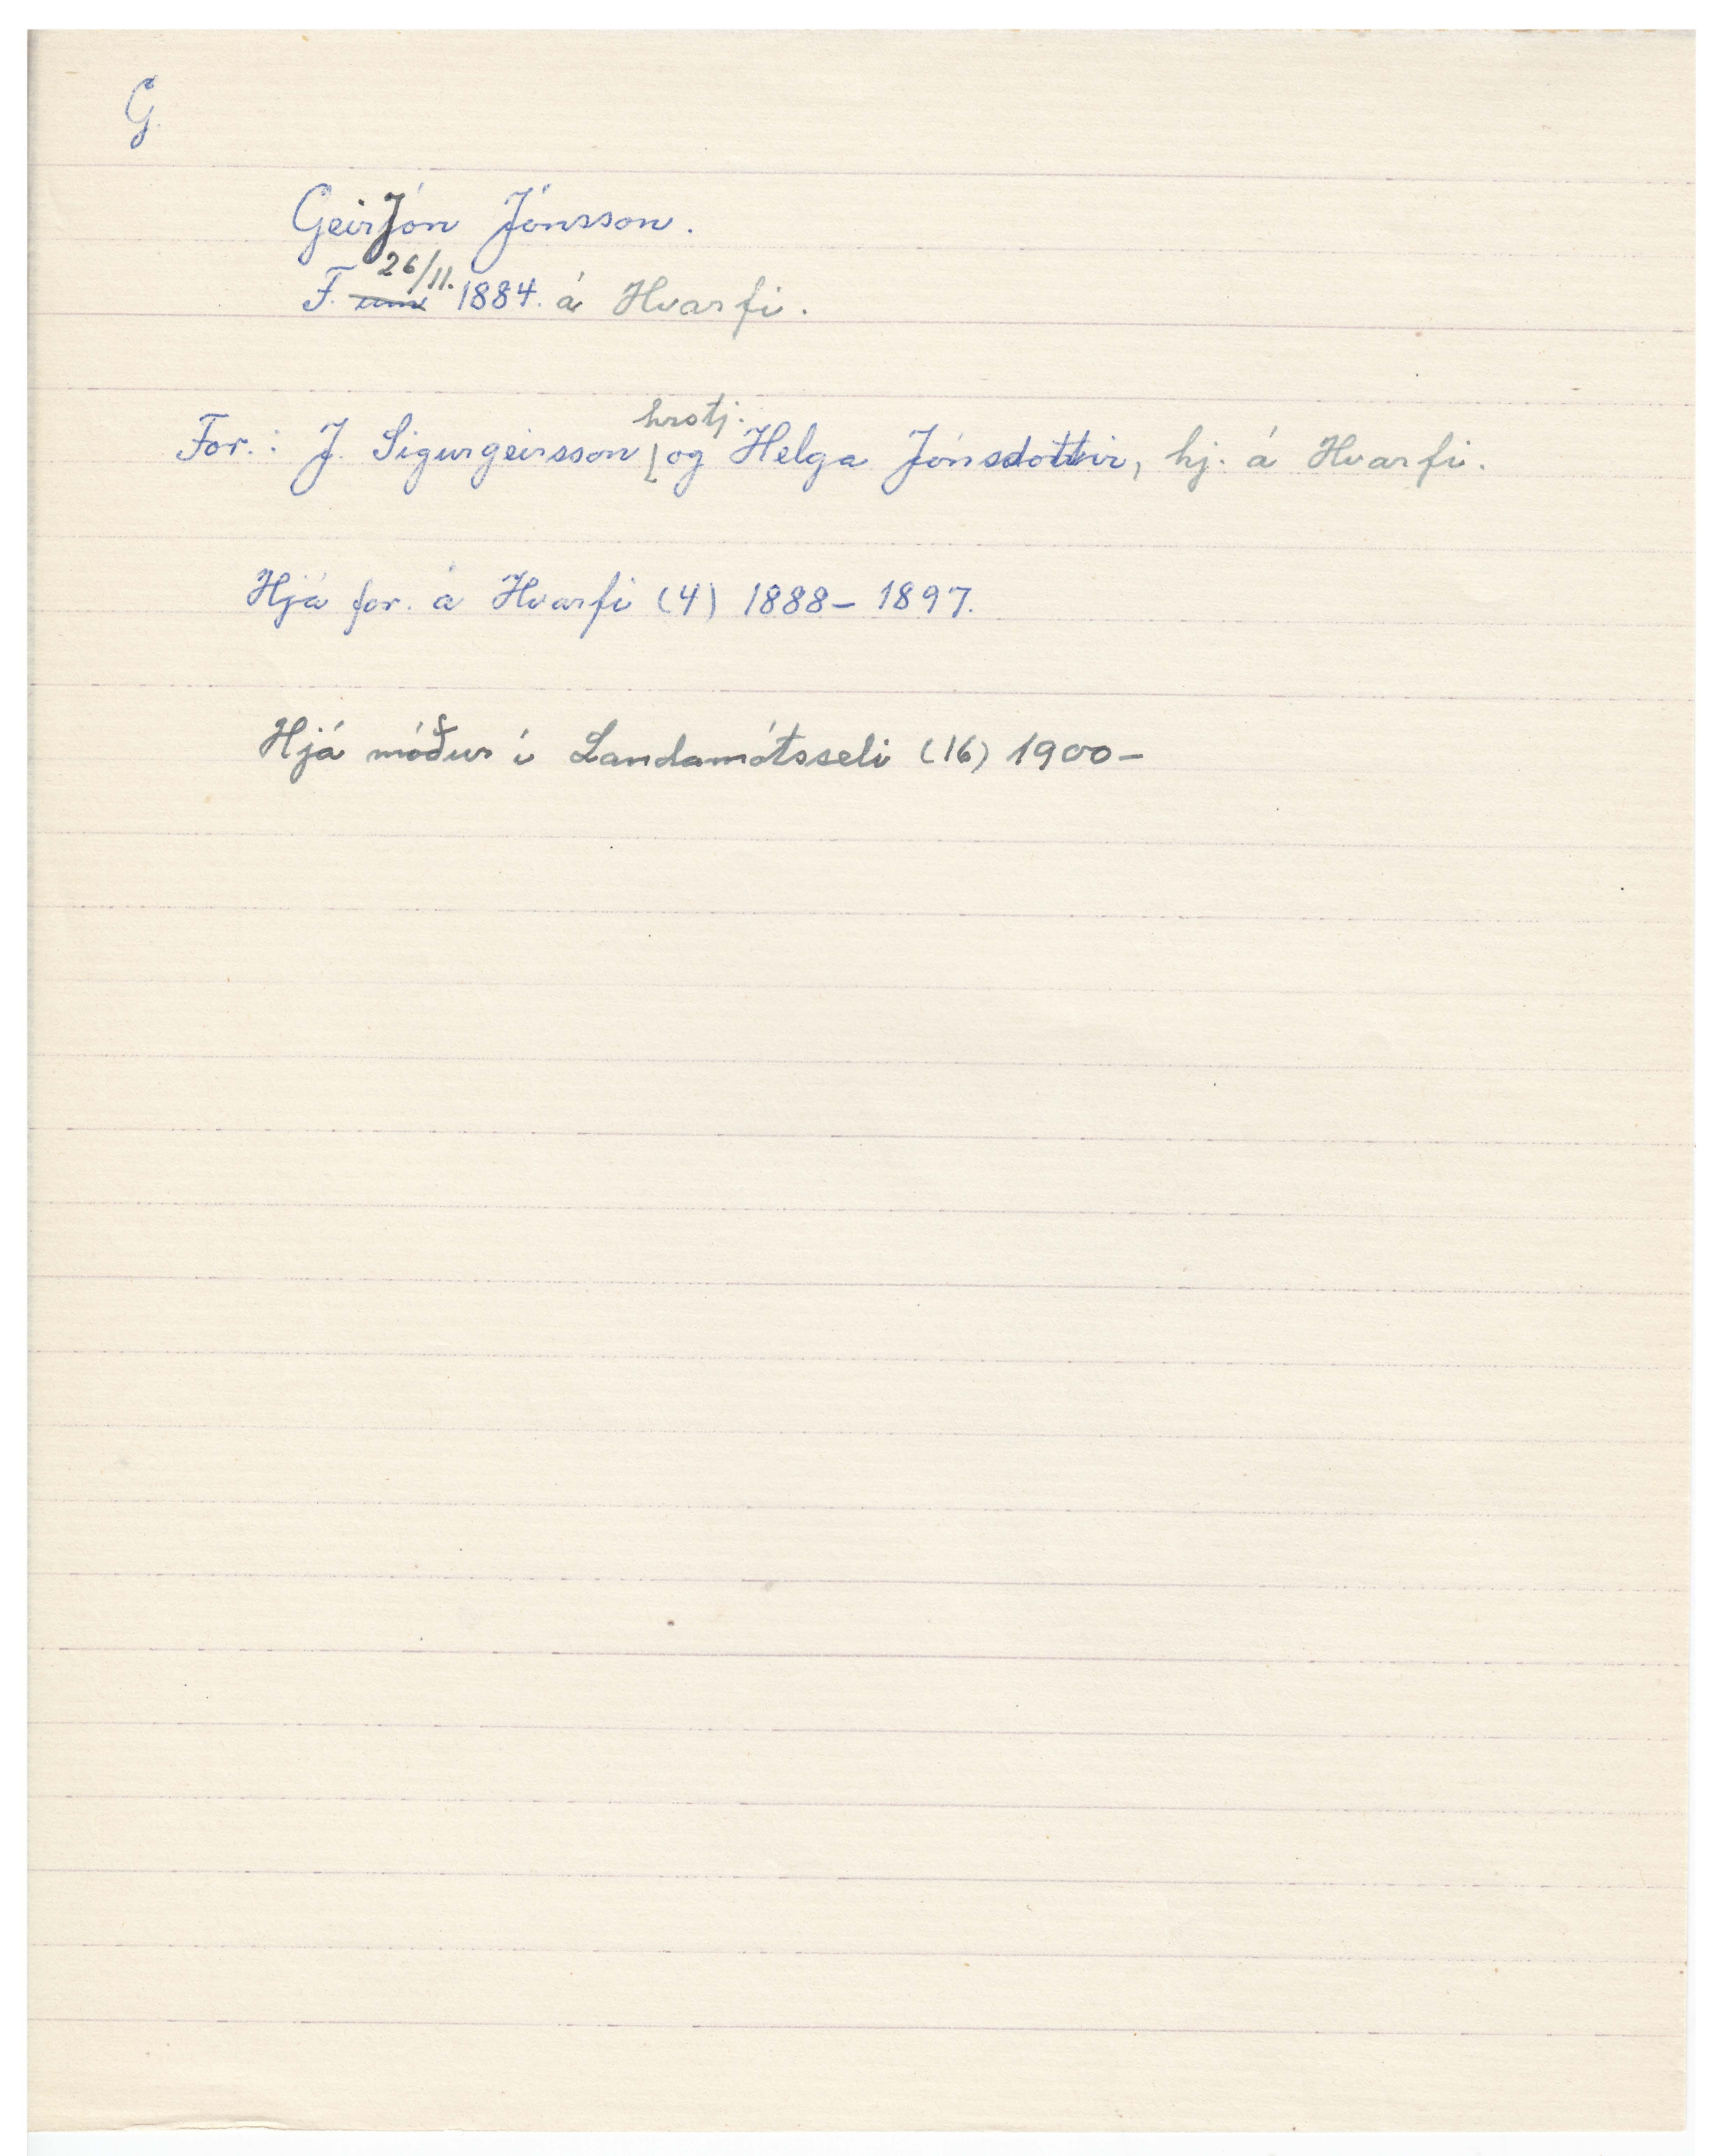 G.
GeirJón Jónsson.
26/11.
F. um 1884. á Hvarfi.
hrstj.
For.: J. Sigurgeirsson og Helga Jónsdóttir, hj. á Hvarfi.
Hjá for. á Hvarfi (4) 1888- 1897.
Hjá móður í Landamótsseli (16) 1900-